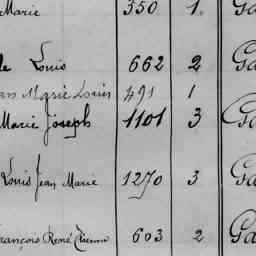 Marie 350 1. Ga
le Louis 662 2 Ga
Marie Louis 491 1
Marie Joseph 1101 3 Ga
Louis Jean Marie 1270 3 Ga
rançois René Etienne 603 2 Ga